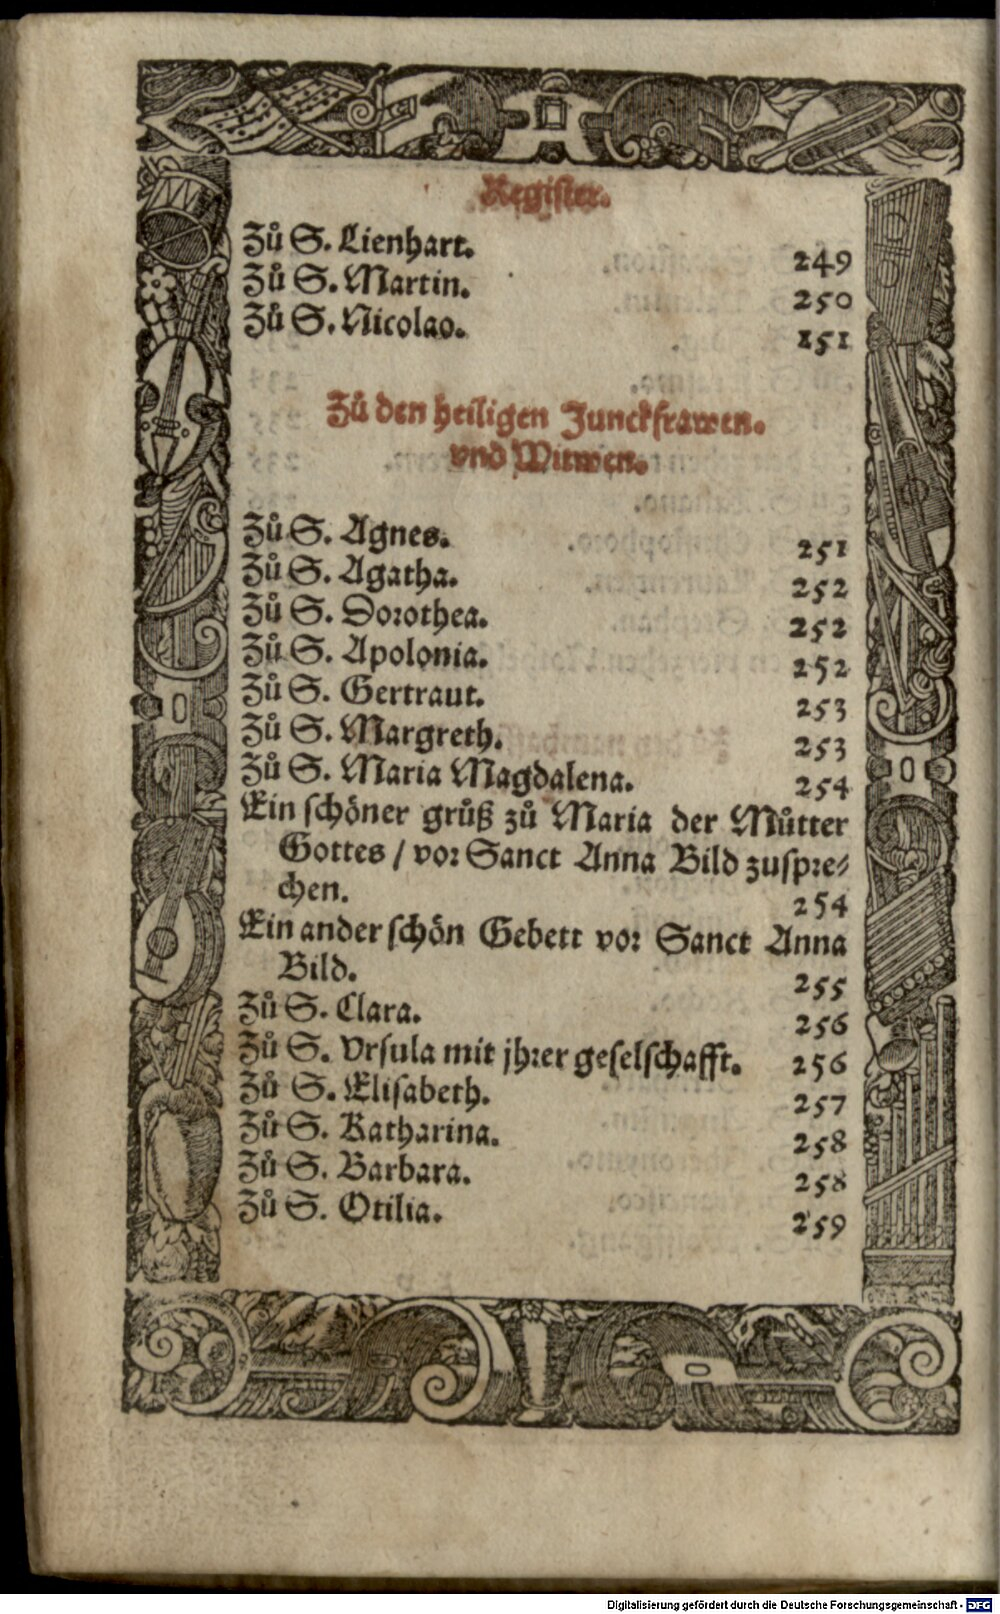 Register.
Zů S. Lienhart. 249
Zů S. Martin. 250
Zů S. Nicolao. 151
Zů den heiligen Junckfrawen.
vnd Witwen.
Zů S. Agnes. 251
Zů S. Agatha. 252
Zů S. Dorothea. 252
Zů S. Apolonia. 252
Zů S. Gertraut. 253
Zů S. Margreth. 253
Zů S. Maria Magdalena. 254
Ein schöner grůß zů Maria der Můtter
Gottes / vor Sanct Anna Bild zuspre-
chen. 254
Ein ander schön Gebett vor Sanct Anna
Bild. 255
Zů S. Clara. 256
Zů S. Vrsula mit jhrer geselschafft. 256
Zů S. Elisabeth. 257
Zů S. Katharina. 258
Zů S. Barbara. 258
Zů S. Otilia. 259
Digitalisierung gefördert durch die Deutsche Forschungsgemeinschaft - DFG